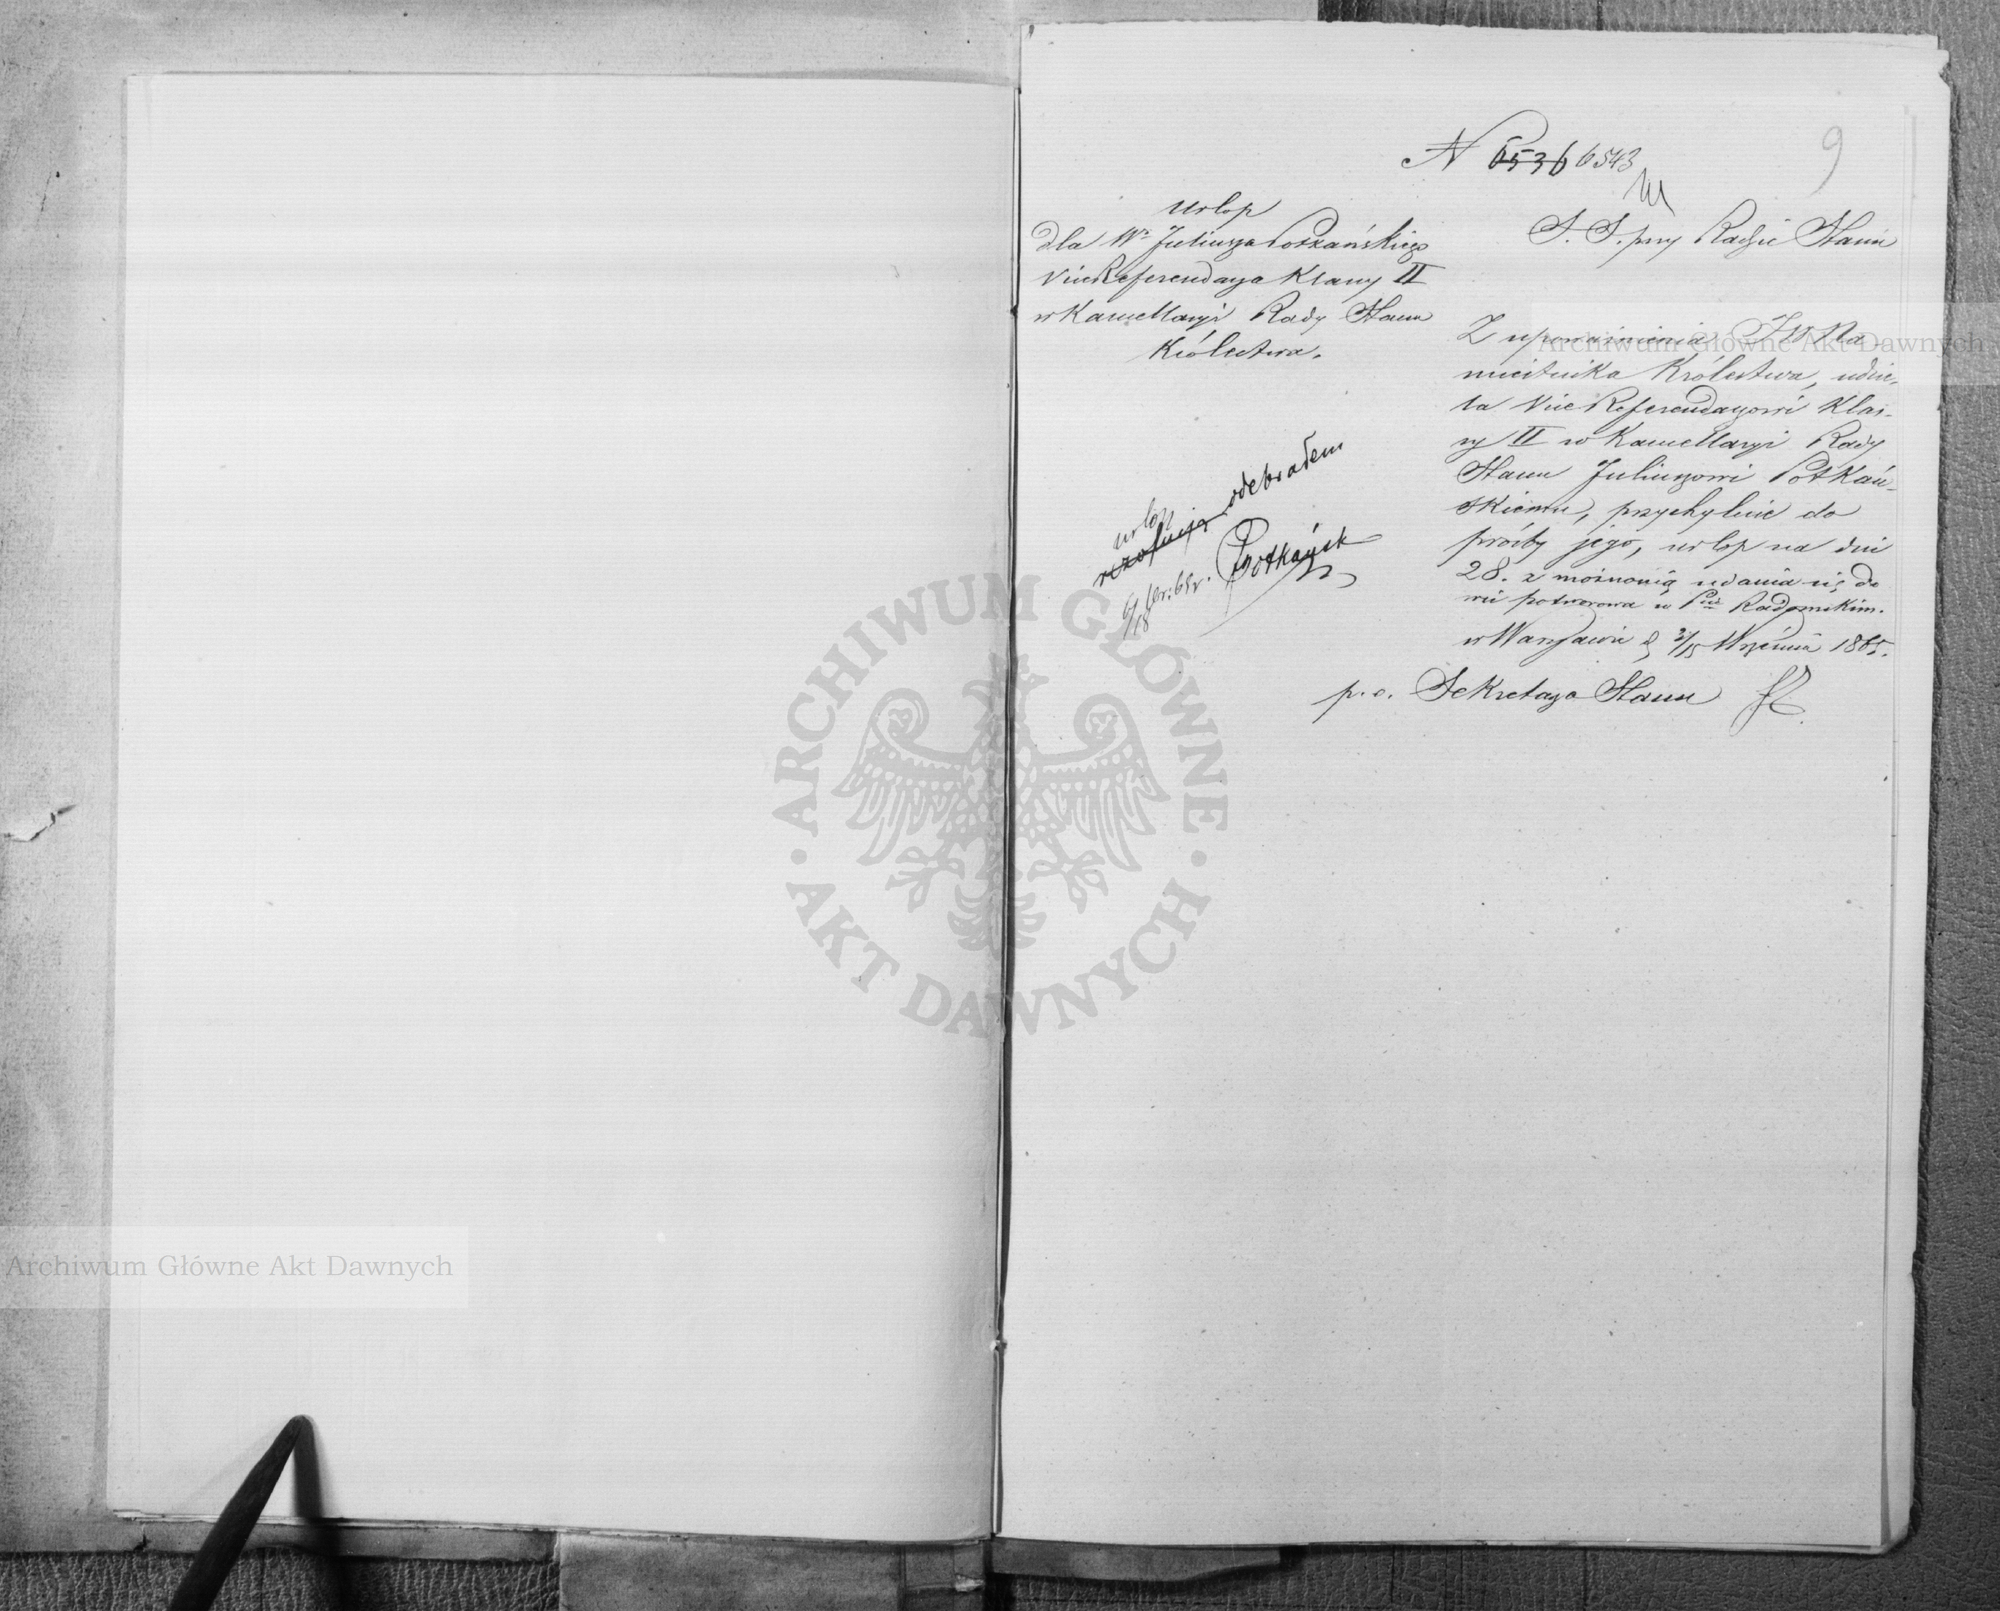 9
N 6536 6543
Urlop
dla Wo Juliusza Potkańskiego
ViceReferendarza Klassy II
w Kancellaryi Rady Stanu
Królestwa.
S. S. przy Radzie Stanu
Z upoważnienia JW Na-
miestnika Królestwa, udzie-
la ViceReferendarzowi Klas-
sy II w Kancellaryi Rady
Stanu Juliuszowi Potkań-
skiemu, przychylnie do
prośby jego, urlop na dni
28. z możnością udania się do
wsi Potworowa w Pcie Radomskim.
w Warszawie d 3/15 Września 1865.
p.o. Sekretarza Stanu
urlop
rezolucją odebrałem
6/18 65 r. Potkański
Archiwum Główne Akt Dawnych
Archiwum Główne Akt Dawnych
ARCHIWUM GŁÓWNE
AKT DAWNYCH